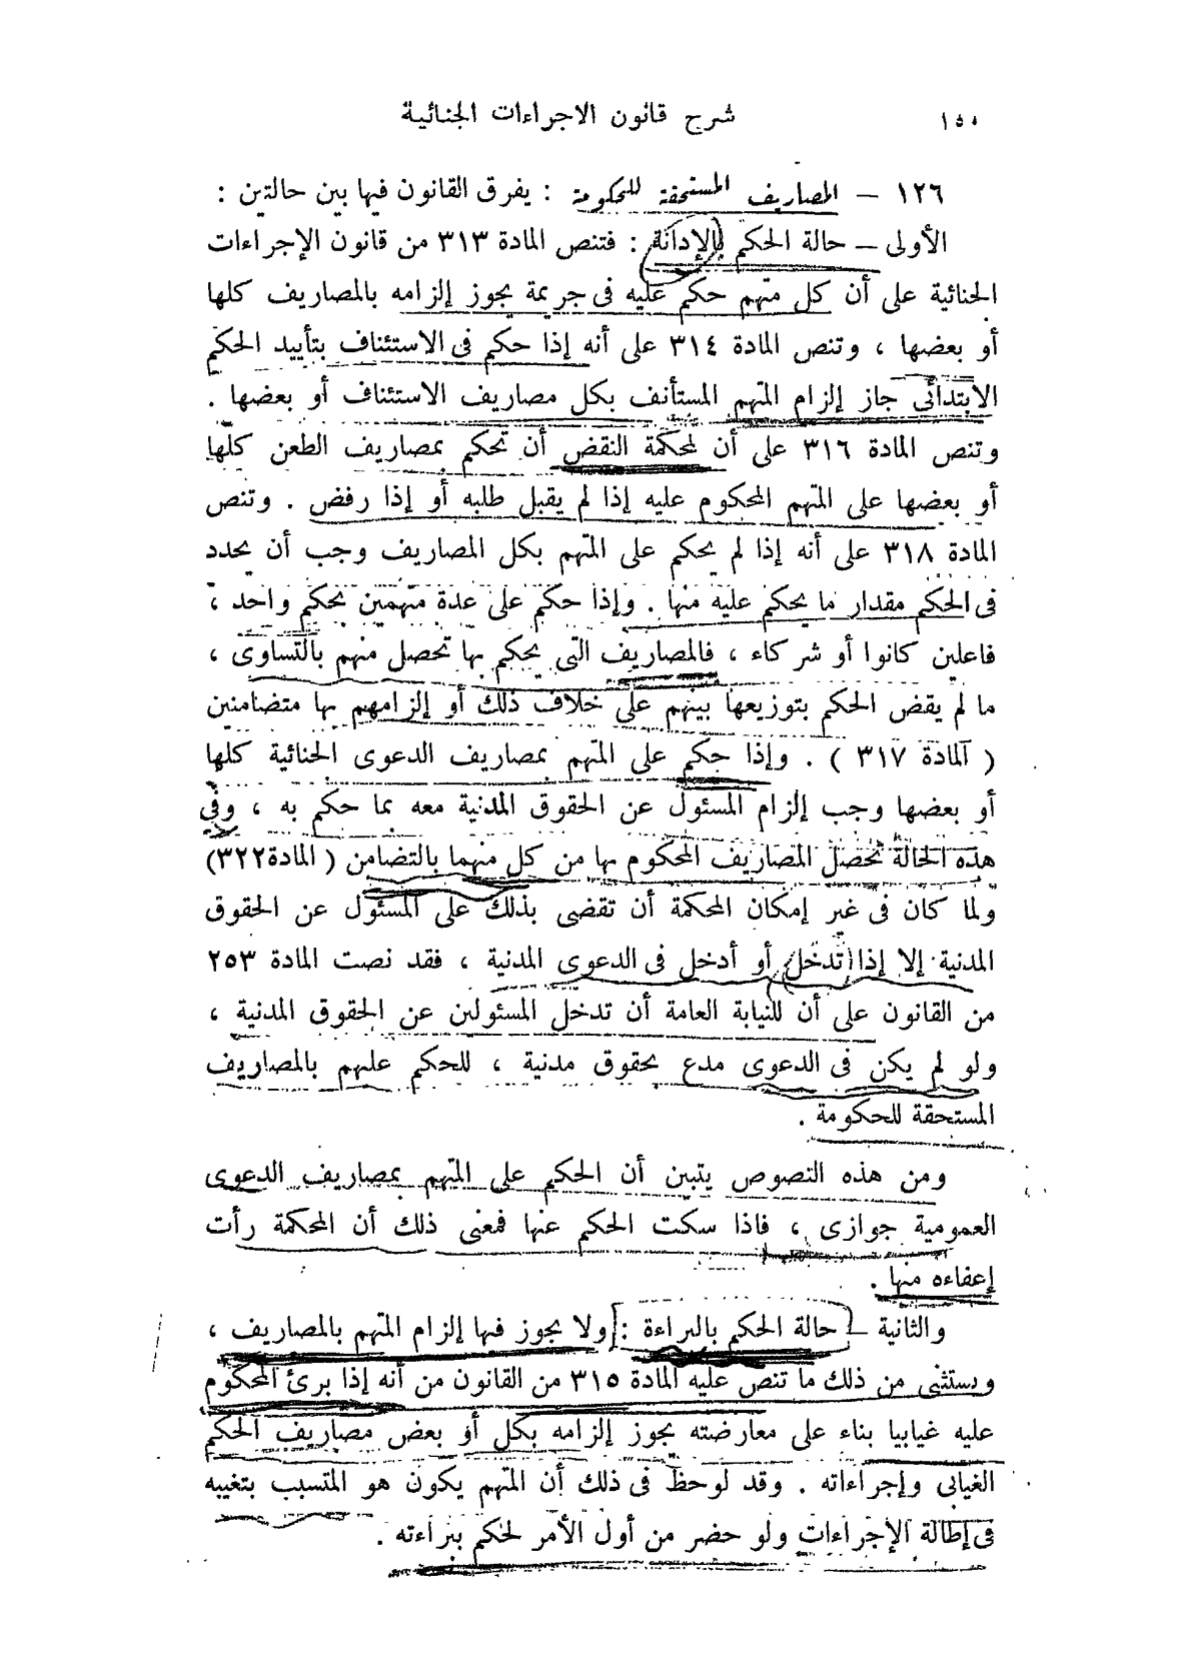 ١٥٠ شرح قانون الاجراءات الجنائية
١٢٦ – المصاريف المستحقة للحكومة : يفرق القانون فيها بين حالتين :
الأولى – حالة الحكم بالإدانة : فتنص المادة ٣١٣ من قانون الإجراءات
الجنائية على أن كل متهم حكم عليه فى جريمة يجوز إلزامه بالمصاريف كلها
أو بعضها ، وتنص المادة ٣١٤ على أنه إذا حكم فى الاستئناف بتأييد الحكم
الابتدائى جاز إلزام المتهم المستأنف بكل مصاريف الاستئناف أو بعضها .
وتنص المادة ٣١٦ على أن لمحكمة النقض أن تحكم بمصاريف الطعن كلها
أو بعضها على المتهم المحكوم عليه إذا لم يقبل طلبه أو إذا رفض . وتنص
المادة ٣١٨ على أنه إذا لم يحكم على المتهم بكل المصاريف وجب أن يحدد
فى الحكم مقدار ما يحكم عليه منها . وإذا حكم على عدة متهمين بحكم واحد ،
فاعلين كانوا أو شركاء ، فالمصاريف التى يحكم بها تحصل منهم بالتساوى ،
ما لم يقض الحكم بتوزيعها بينهم على خلاف ذلك أو إلزامهم بها متضامنين
( المادة ٣١٧ ) . وإذا حكم على المتهم بمصاريف الدعوى الجنائية كلها
أو بعضها وجب إلزام المسئول عن الحقوق المدنية معه بما حكم به ، وفى
هذه الحالة تحصل المصاريف المحكوم بها من كل منهما بالتضامن ( المادة ٣٢٢)
ولما كان فى غير إمكان المحكمة أن تقضى بذلك على المسئول عن الحقوق
المدنية إلا إذا تدخل أو أدخل فى الدعوى المدنية ، فقد نصت المادة ٢٥٣
من القانون على أن للنيابة العامة أن تدخل المسئولين عن الحقوق المدنية ،
ولو لم يكن فى الدعوى مدع بحقوق مدنية ، للحكم عليهم بالمصاريف
المستحقة للحكومة .
ومن هذه النصوص يتبين أن الحكم على المتهم بمصاريف الدعوى
العمومية جوازى ، فاذا سكت الحكم عنها فمعنى ذلك أن المحكمة رأت
إعفاءه منها .
والثانية – حالة الحكم بالبراءة : ولا يجوز فيها إلزام المتهم بالمصاريف ،
ويستثنى من ذلك ما تنص عليه المادة ٣١٥ من القانون من أنه إذا برئ المحكوم
عليه غيابيا بناء على معارضته يجوز إلزامه بكل أو بعض مصاريف الحكم
الغيابى وإجراءاته . وقد لوحظ فى ذلك أن المتهم يكون هو المتسبب بتغيبه
فى إطالة الإجراءات ولو حضر من أول الأمر لحكم ببراءته .